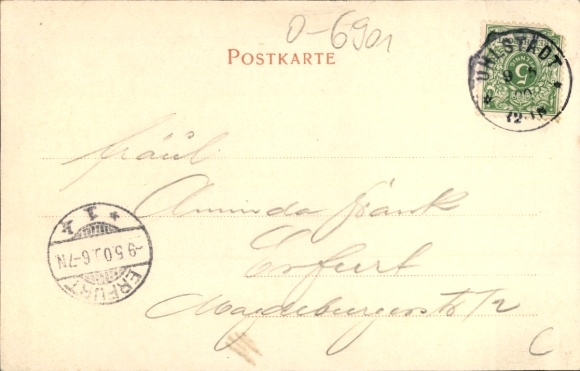 0-6901
POSTKARTE
UHLSTÄDT
9 5
00
12-1N
5
Fräul.
Aminda Bank
Erfurt
Magdeburgerstr 12
ERFURT
-9.5.0 6-7N
* 1 k
C